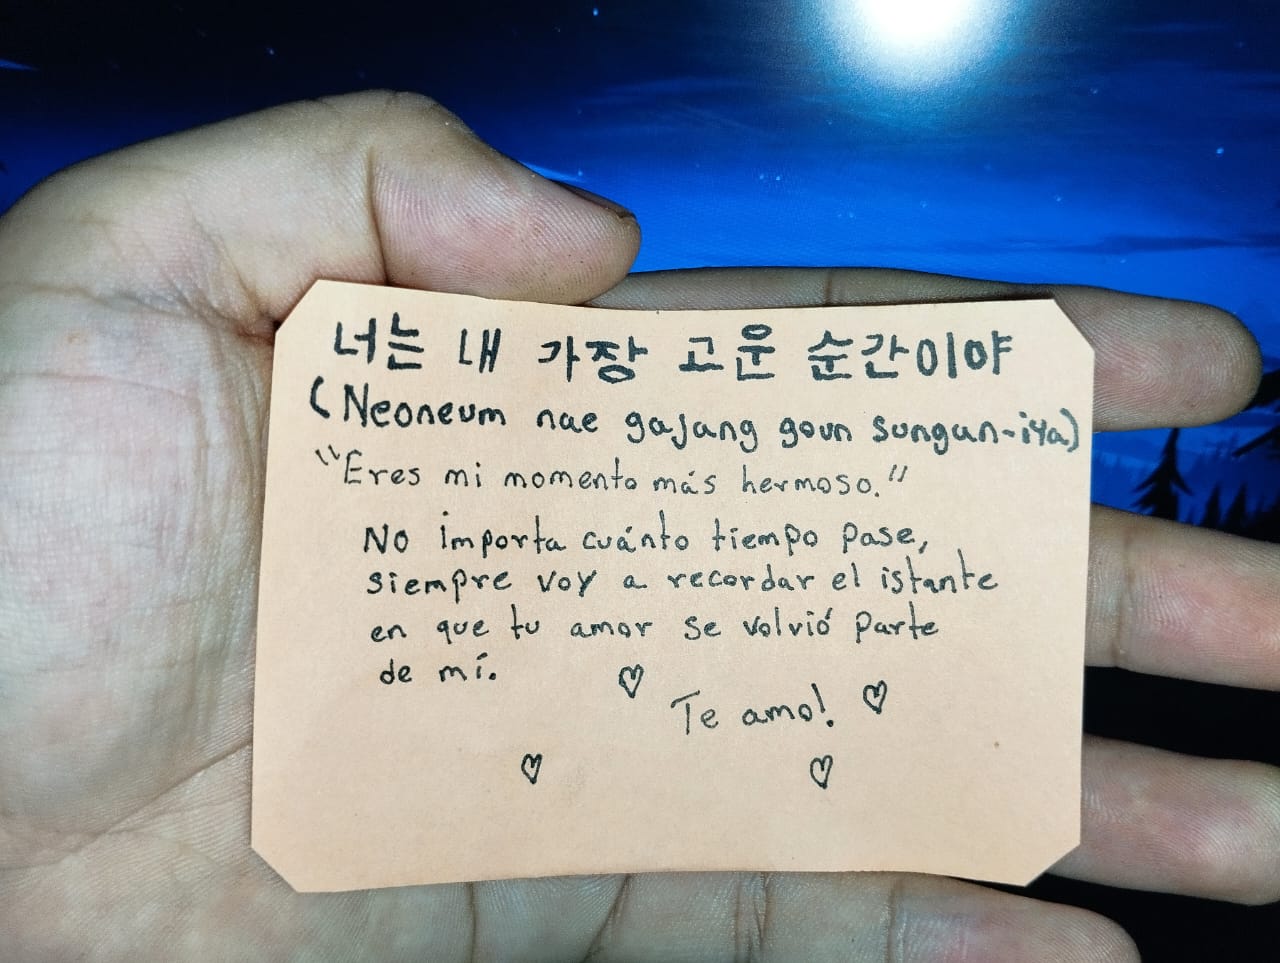 너는 내 가장 고운 순간이야
(Neoneum nae gajang goun sungan-iya)
"Eres mi momento más hermoso."
No importa cuánto tiempo pase,
siempre voy a recordar el istante
en que tu amor se volvió parte
de mí.
Te amo!